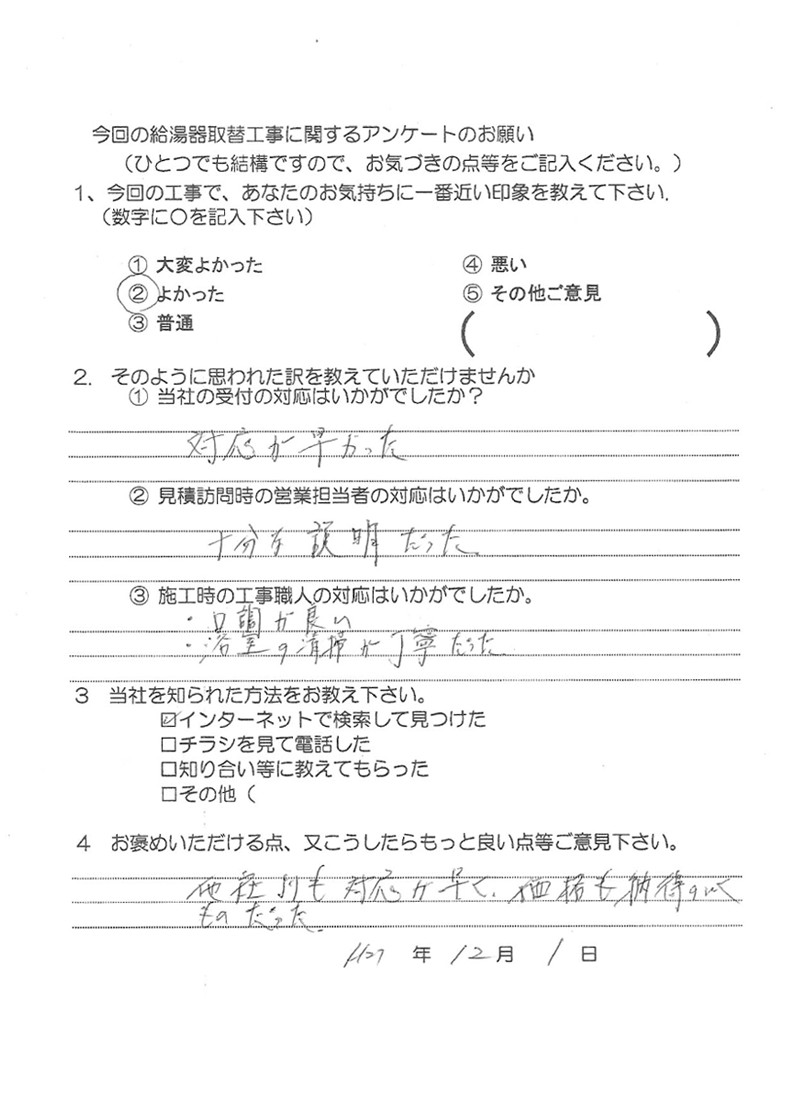 今回の給湯器取替工事に関するアンケートのお願い
（ひとつでも結構ですので、お気づきの点等をご記入ください。）
1、今回の工事で、あなたのお気持ちに一番近い印象を教えて下さい.
（数字に〇を記入下さい）
① 大変よかった
② よかった
③ 普通
④ 悪い
⑤ その他ご意見
（ ）
2. そのように思われた訳を教えていただけませんか
① 当社の受付の対応はいかがでしたか？
対応が早かった
② 見積訪問時の営業担当者の対応はいかがでしたか。
十分な説明だった。
③ 施工時の工事職人の対応はいかがでしたか。
・口調が良い
・浴室の清掃が丁寧だった
3 当社を知られた方法をお教え下さい。
☑インターネットで検索して見つけた
□チラシを見て電話した
□知り合い等に教えてもらった
□その他（
4 お褒めいただける点、又こうしたらもっと良い点等ご意見下さい。
他社よりも対応が早く、価格も納得のいく
ものだった。
H27 年 12月 1 日